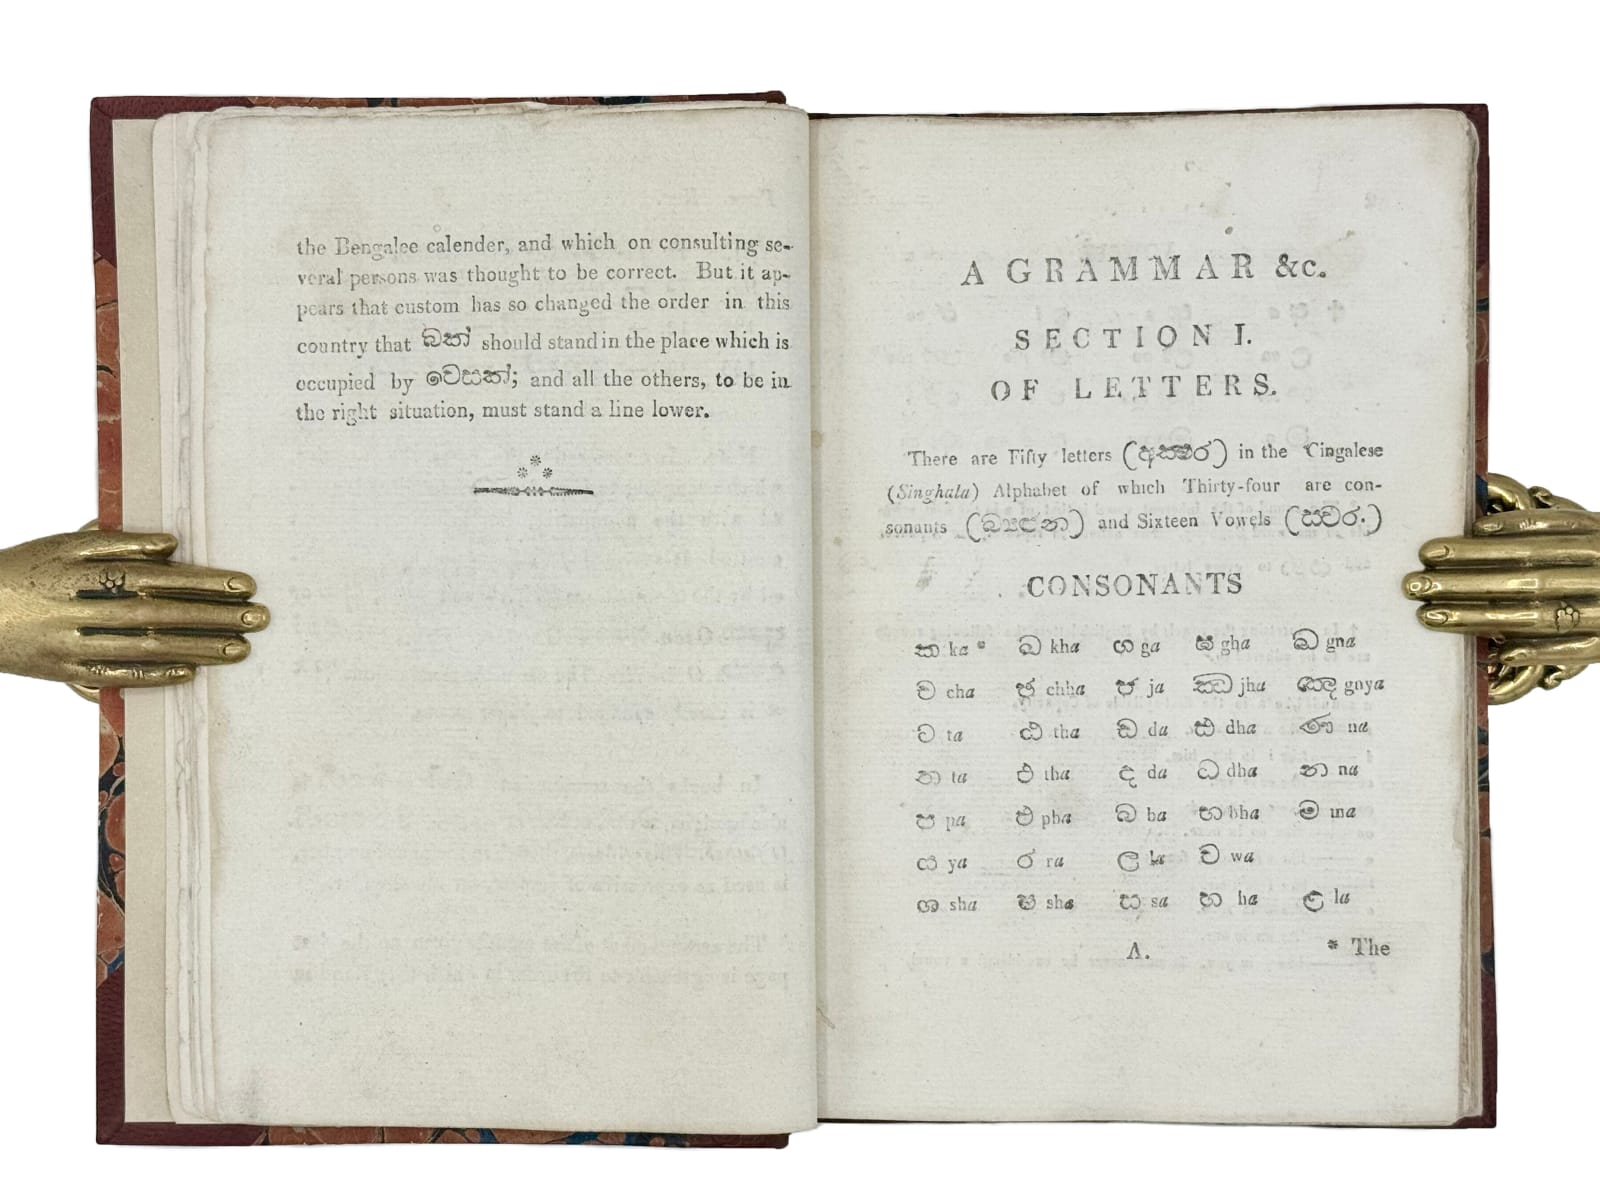 the Bengalee calender, and which on consulting se-
veral persons was thought to be correct. But it ap-
pears that custom has so changed the order in this
country that බක් should stand in the place which is
occupied by වෙසක්; and all the others, to be in
the right situation, must stand a line lower.
A GRAMMAR &c.
SECTION I.
OF LETTERS.
There are Fifty letters () in the Cingalese
(Singhala) Alphabet of which Thirty-four are con-
sonants () and Sixteen Vowels (ස්වර.)
CONSONANTS
ක ka * ඛ kha ග ga ඝ gha ඞ gna
ච cha ඡ chha ජ ja ඣ jha ඤ gnya
ට ta ඨ tha ඩ da ඪ dha ණ na
ත ta ථ tha ද da ධ dha න na
ප pa ඵ pha බ ba භ bha ම ma
ය ya ර ra ල la ව wa
ශ sha ෂ sha ස sa හ ha ළ la
A. * The